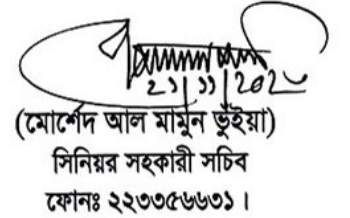 ২১/১১/২০২৮
(মোর্শেদ আল মামুন ভুঁইয়া)
সিনিয়র সহকারী সচিব
ফোনঃ ২২৩৩৫৬৬৩১।